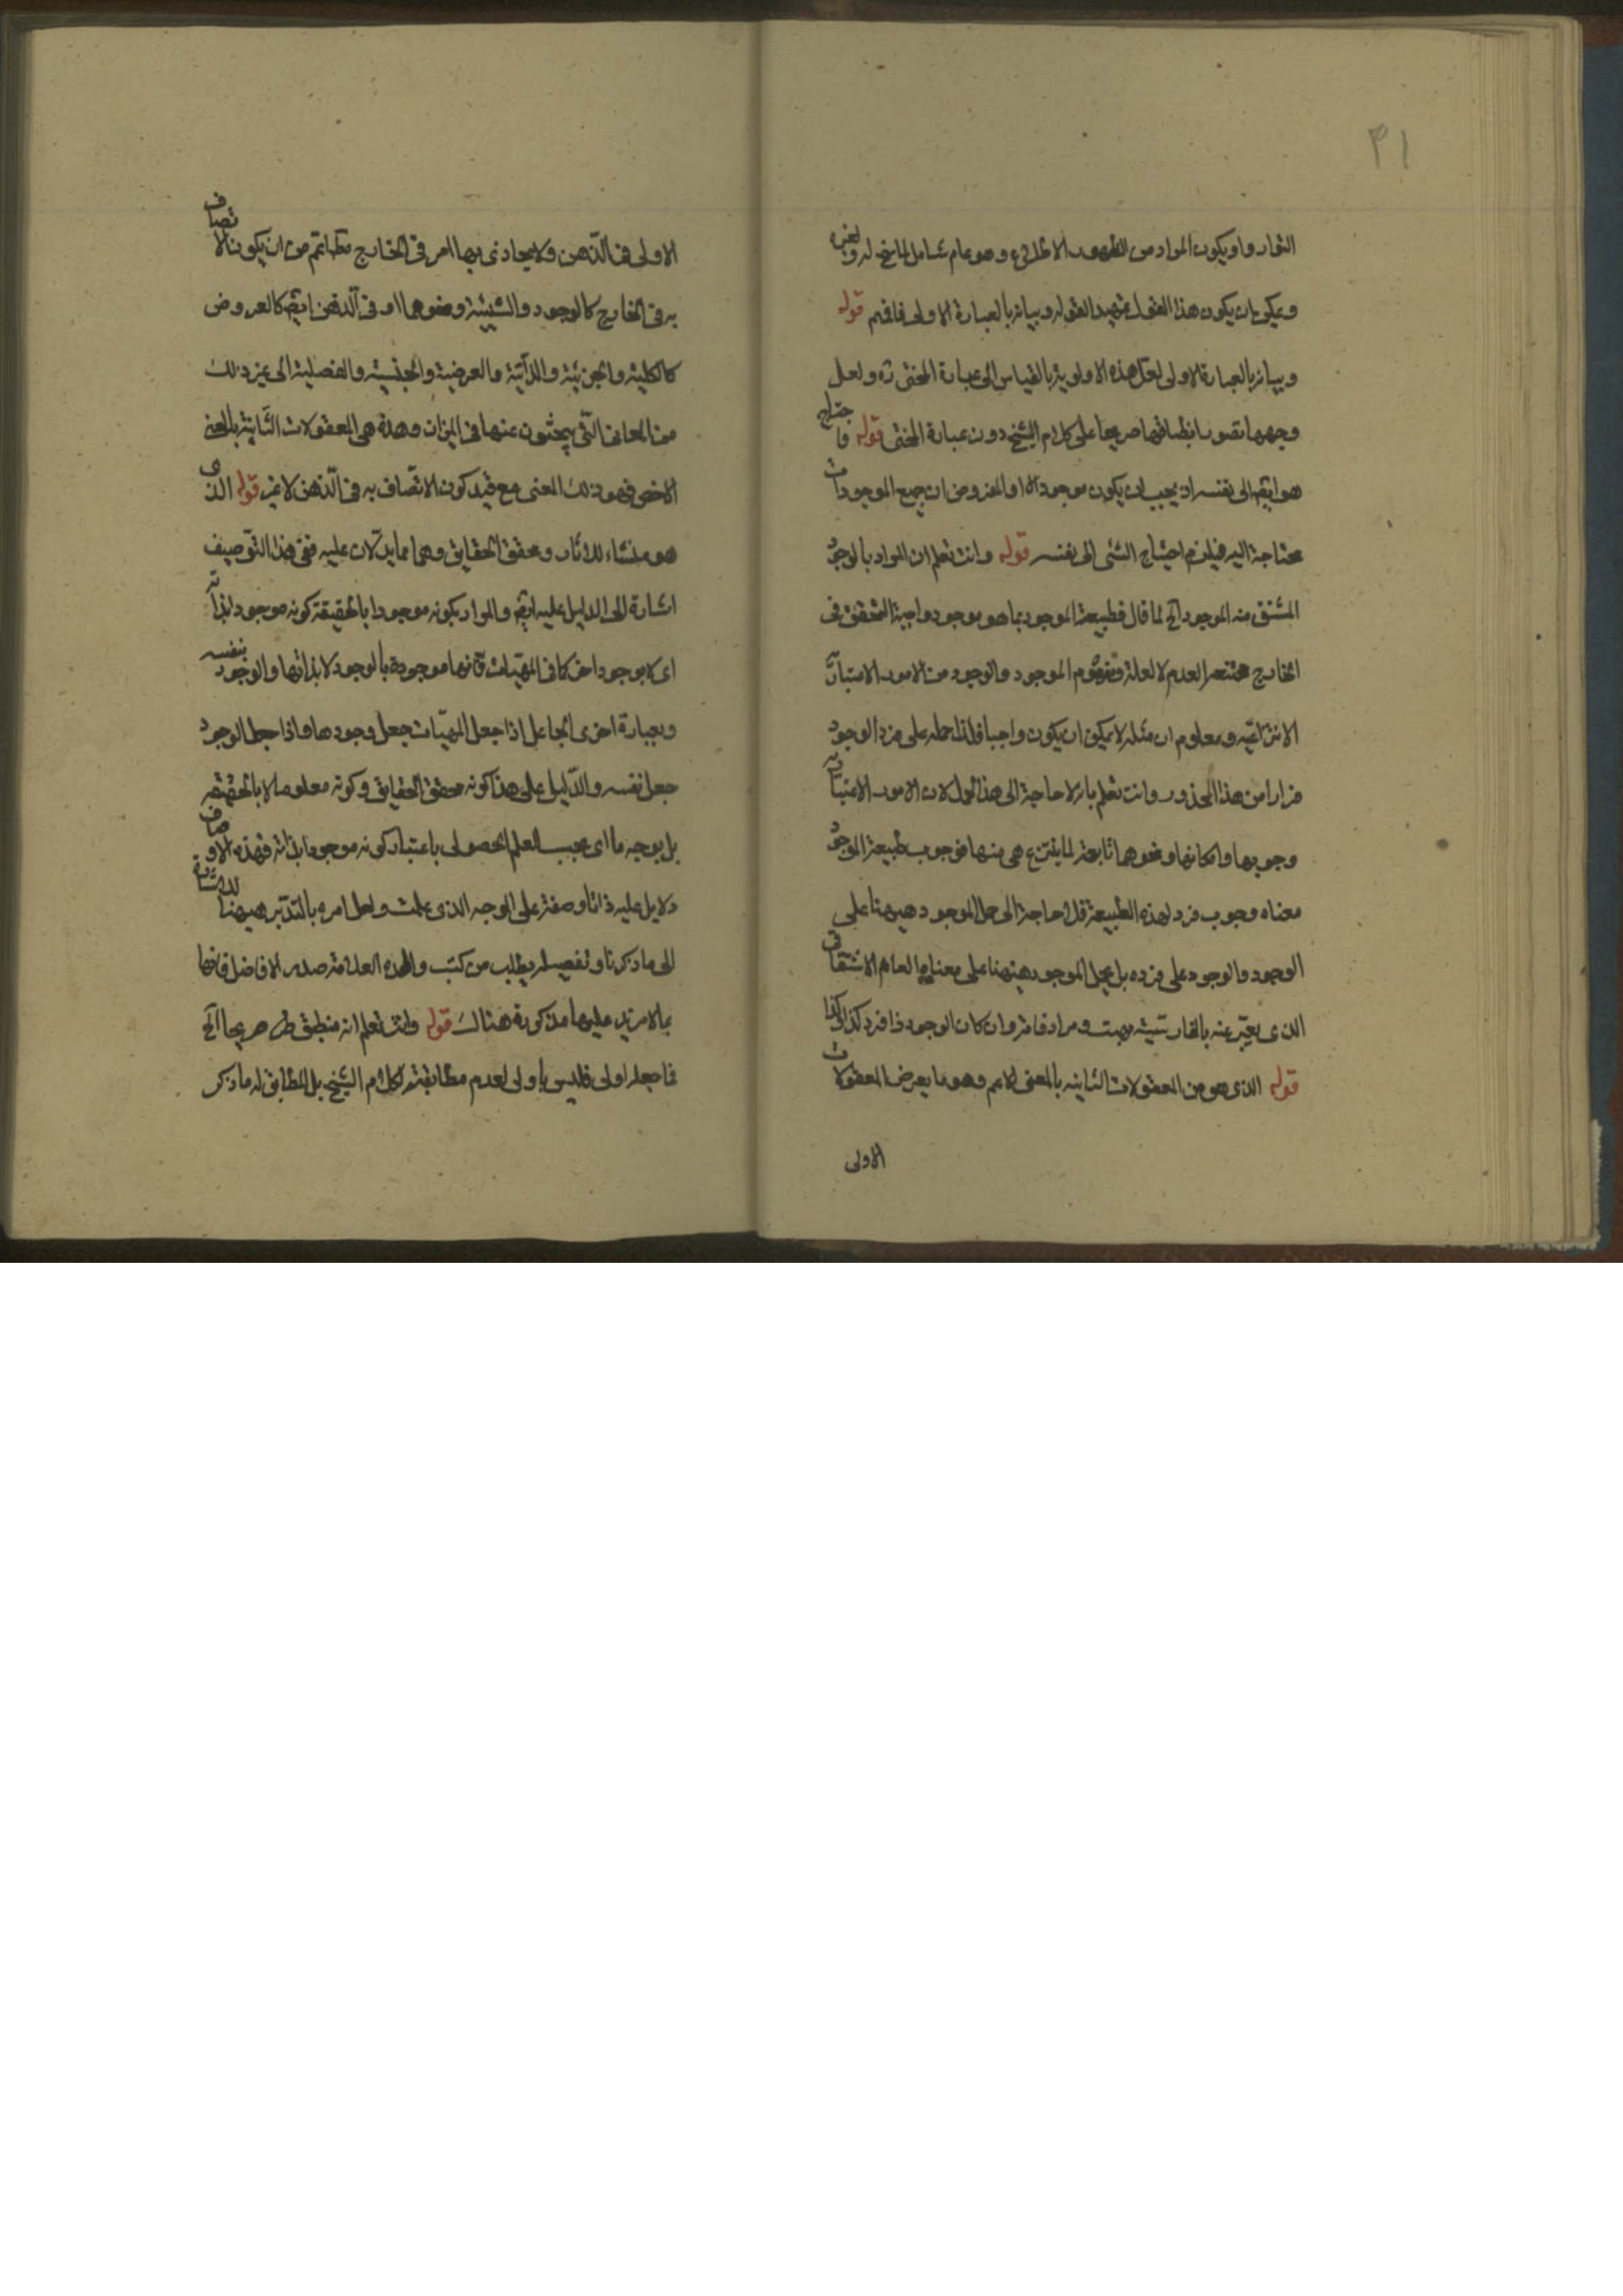 ٣١
النوار واو يكون المراد من الظهور الاطلاق وهو عام شامل لما نحن له ولغيره
ويمكن ان يكون هذا القول تمهيدا لقوله وبيانه بالعبارة الاولى فافهم قوله
وبيانه بالعبارة الاولى لعل هذه الاولوية بالقياس الى عبارة المحقق ره ولعل
وجهها تصور انطباقها صريحا على كلام الشيخ دون عبارة المحقق قوله فاحتاج
هو ايضا الى نفسه اذ يجب ان يكون موجودا والمفروض ان جميع الموجودات
محتاجة اليه فيلزم احتياج الشئ الى نفسه قوله وانت تعلم ان المراد بالوجود
المشتق منه الموجود الخ لما قال فطبيعة الموجود بما هو موجود واجبة التحقق في
الخارج ممتنعة العدم لا لعلة ومفهوم الموجود والوجود من الامور الاعتبارية
الانتزاعية ومعلوم ان مثله لا يمكن ان يكون واجبا فلذا حمله على فرد الوجود
فرارا من هذا المحذور وانت تعلم بانه لا حاجة الى هذا الحمل لان الامور الاعتبارية
وجوبها وامكانها ونحوها تابعة لما ينتزع هي منها فوجوب طبيعة الموجود
معناه وجوب فرد لهذه الطبيعة فلا حاجة الى حمل الموجود هيهنا على
الوجود والوجود على فرده بل يحمل الموجود هيهنا على معناه العام الاشتقاقي
الذي يعبر عنه بالفارسية بهست ومرادفاته وان كان الوجود ذا فرد كذا وكذا
قوله الذي هو من المعقولات الثانية بالمعنى الاعم وهو ما يعرض المعقولات
الاولى
الاولى في الذهن ولا يحاذي بها امر في الخارج اعم من ان يكون الاتصاف
به في الخارج كالوجود والشيئية ونحوهما او في الذهن ايضا كالعروض
كالكلية والجزئية والذاتية والعرضية والجنسية والفصلية الى غير ذلك
من المعاني التي يبحثون عنها في الميزان وهذه هي المعقولات الثانية بالمعنى
الاخص فهو ذلك المعنى مع قيد كون الاتصاف به في الذهن لا غير قوله الذي
هو منشاء للاثار ومحقق الحقايق وهما مما يدلان عليه ففي هذا التوصيف
اشارة الى الدليل عليه ايضا والمراد بكونه موجودا بالحقيقة كونه موجودا بذاته
اي لا بوجود اخر كما في المهيات فانها موجودة بالوجود لا بذاتها والوجود بنفسه
وبعبارة اخرى الجاعل اذا جعل المهيات جعل وجودها واذا جعل الوجود
جعل نفسه والدليل على هذا كونه محقق الحقايق وكونه معلوما لا بالحقيقة
بل بوجه ما اي بحسب العلم الحصولي باعتبار كونه موجودا بذاته فهذه الاوصاف
دلايل عليه ذاتا وصفة على الوجه الذي علمت ولعل امره بالتدبر هيهنا للاشارة
الى ما ذكرنا وتفصيله يطلب من كتب والده العلامة صدر الافاضل فانها
بما لا مزيد عليها مذكورة هنالك قوله وانت تعلم انه منطبق صريحا الخ
فما جعله اولى فليس باولى لعدم مطابقته لكلام الشيخ بل المطابق له ما ذكر